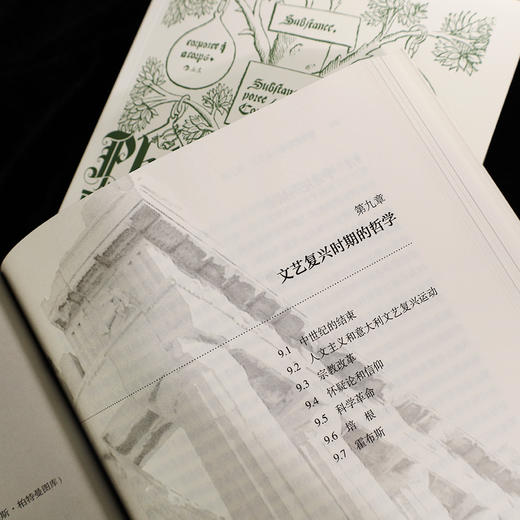 Substance.
corporeę
acorpo.
Substan
poree
Co
Ph
第九章
文艺复兴时期的哲学
9.1 中世纪的结束
9.2 人文主义和意大利文艺复兴运动
9.3 宗教改革
9.4 怀疑论和信仰
9.5 科学革命
9.6 培根
9.7 霍布斯
斯·柏特曼图库）